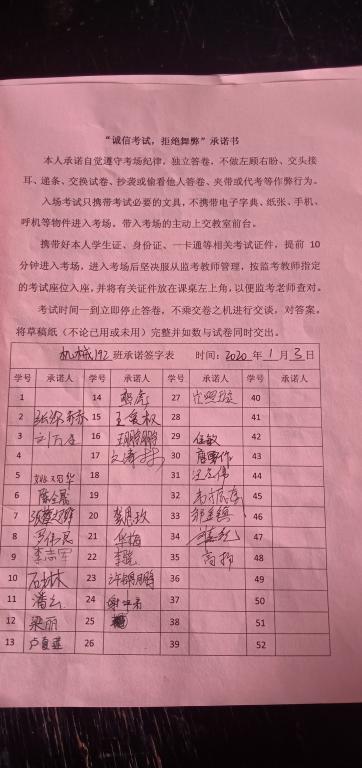 “诚信考试，拒绝舞弊”承诺书
本人承诺自觉遵守考场纪律，独立答卷，不做左顾右盼、交头接
耳、递条、交换试卷、抄袭或偷看他人答卷、夹带或代考等作弊行为。
入场考试只携带考试必要的文具，不携带电子字典、纸张、手机、
呼机等物件进入考场。带入考场的主动上交教室前台。
携带好本人学生证、身份证、一卡通等相关考试证件，提前 10
分钟进入考场，进入考场后坚决服从监考教师管理，按监考教师指定
的考试座位入座，并将有关证件放在课桌左上角，以便监考老师查对。
考试时间一到立即停止答卷，不乘交卷之机进行交谈，对答案。
将草稿纸（不论已用或未用）完整并如数与试卷同时交出。
机械192 班承诺签字表 时间：2020 年 1 月 3 日
学号 承诺人 学号 承诺人 学号 承诺人 学号 承诺人
1 14 27 40
2 15 王爱权 28 41
3 16 29 任敏 42
4 17 30 43
5 18 31 44
6 19 32 45
7 20 33 46
8 21 华梅 34 47
9 李志军 22 李锐 35 高扬 48
10 石林 23 许锦鹏 36 49
11 潘云 24 37 50
12 梁丽 25 38 51
13 卢夏莲 26 39 52